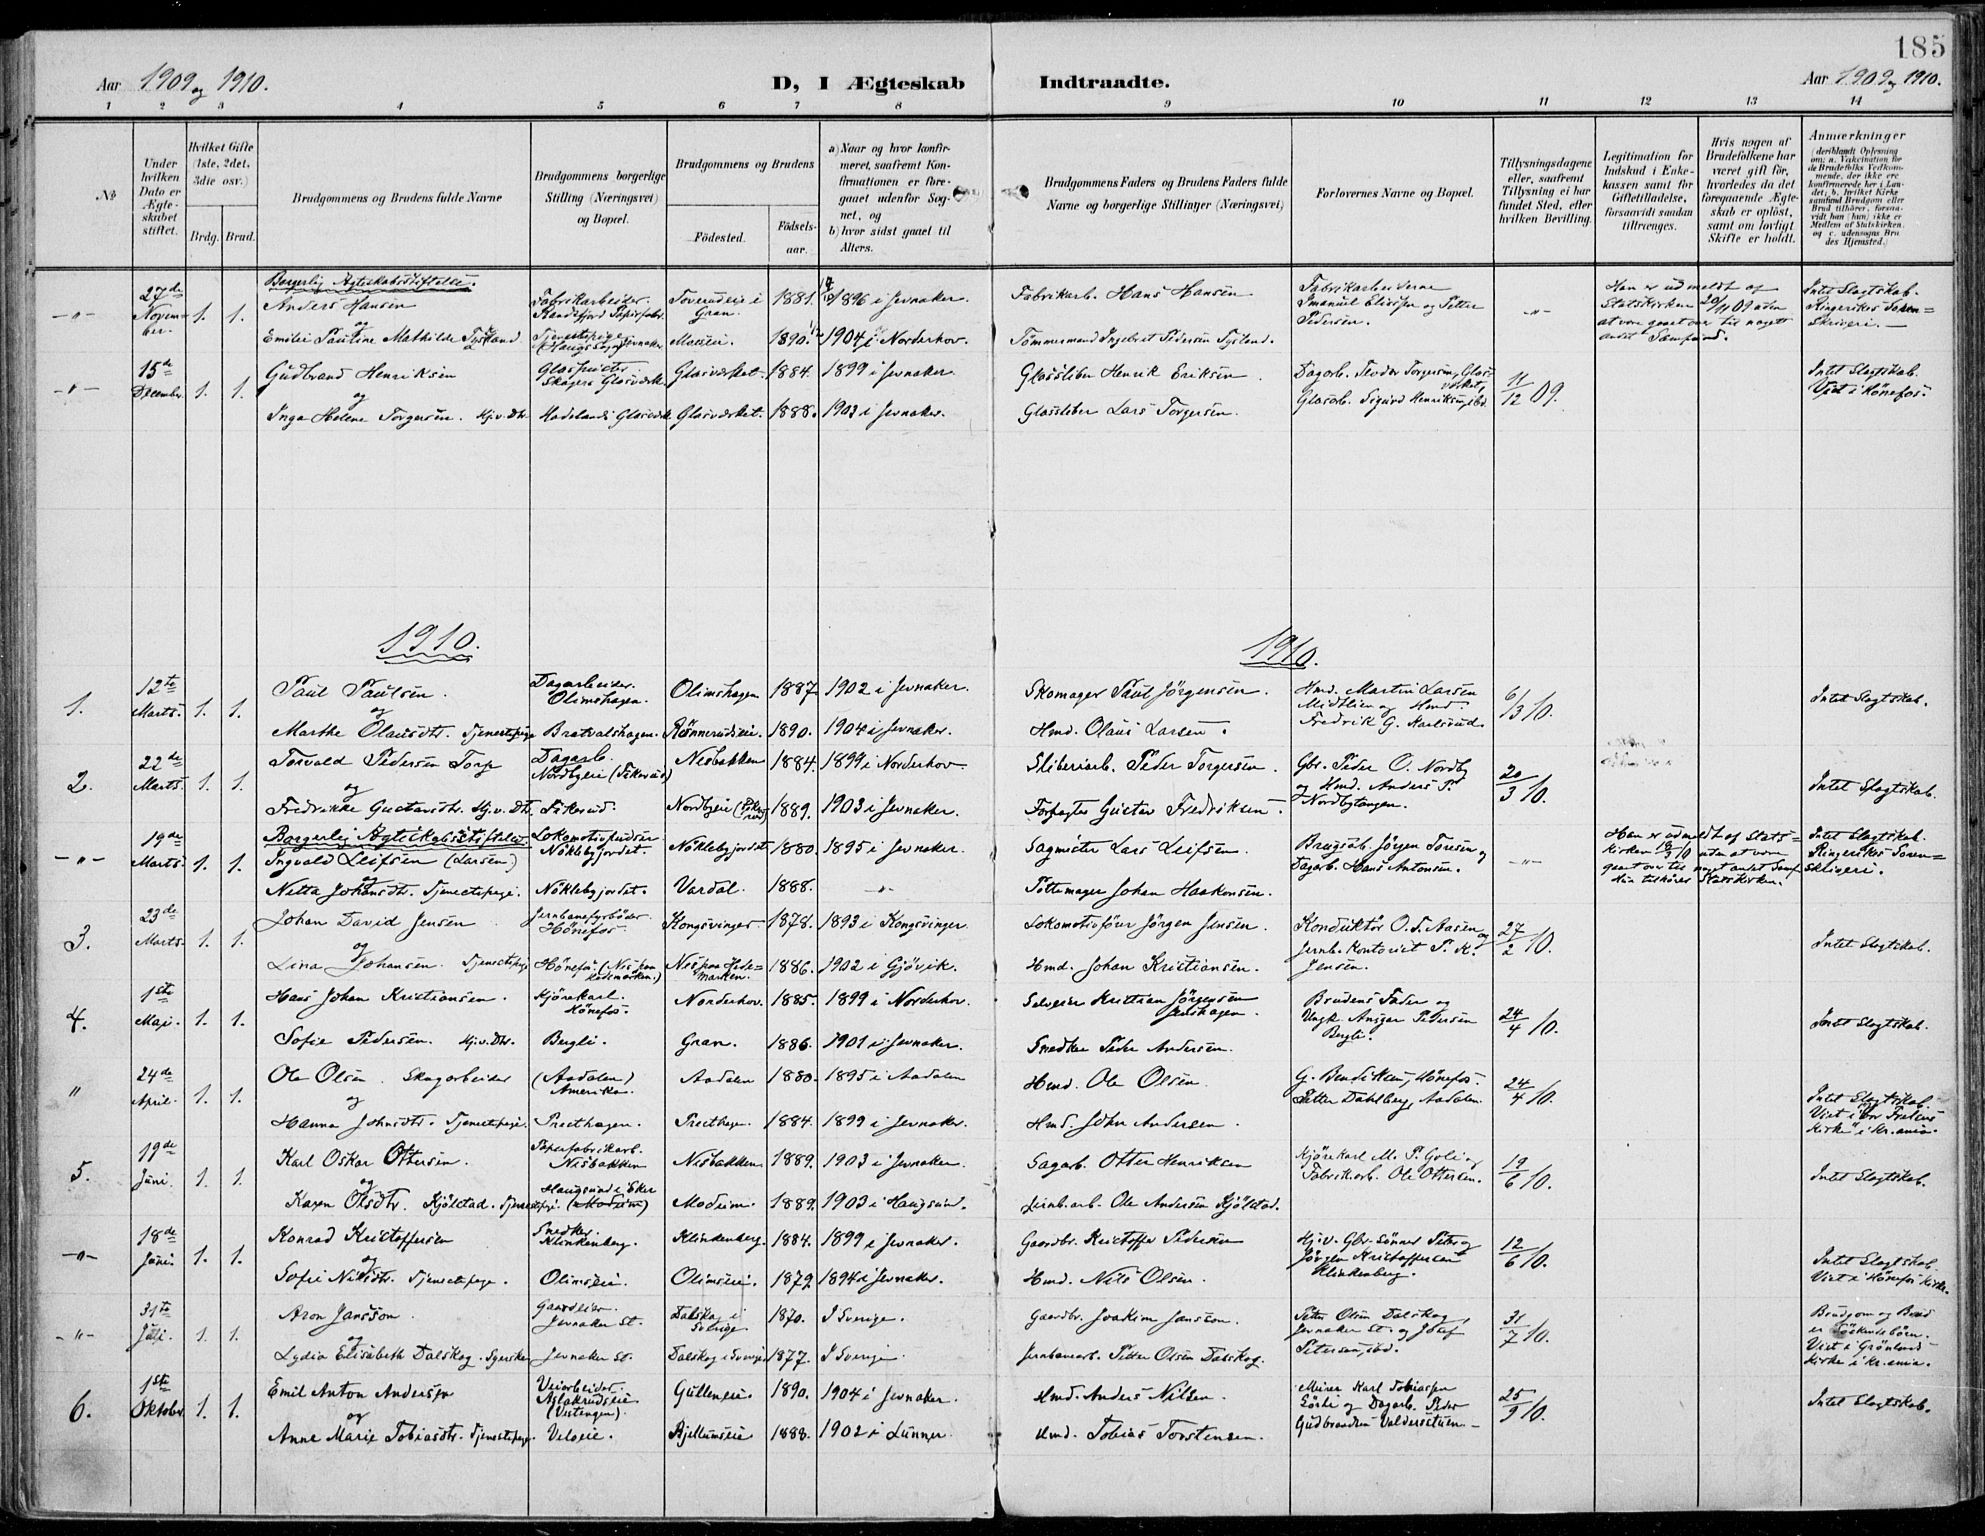 185
Aar 1909 og 1910.
D, I Ægteskab Indtraadte.
Aar 1909 og 1910.
1 2 3 4 5 6 7 8 9 10 11 12 13 14
No
Under hvilken Dato er Ægteskabet stiftet.
Hvilket Gifte (1ste, 2det, 3die osv.)
Brdg. Brud.
Brudgommens og Brudens fulde Navne
Brudgommens borgerlige Stilling (Næringsvei) og Bopæl.
Brudgommens og Brudens
Födested.
Födselsaar.
a) Naar og hvor konfirmeret, saafremt Konfirmationen er foregaaet udenfor Sognet, og
b) hvor sidst gaaet til Alters.
Brudgommens Faders og Brudens Faders fulde Navne og borgerlige Stillinger (Næringsvei)
Forlovernes Navne og Bopæl.
Tillysningsdagene eller, saafremt Tillysning ei har fundet Sted, efter hvilken Bevilling.
Legitimation for Indskud i Enkekassen samt for Giftetilladelse, forsaavidt saadan tiltrænges.
Hvis nogen af Brudefolkene har været gift för, hvorledes da det foregaaende Ægteskab er oplöst, samt om lovligt Skifte er holdt.
Anmærkninger (deriblandt Oplysning om: a. Vaccination for de Brudefolks Vedkommende, der ikke ere konfirmerede her i Landet; b. hvilket Kirkesamfund Brudgom eller Brud tilhörer, forsaavidt han (hun) ikke er Medlem af Statskirken, og c. udensogns Brudes Hjemsted.)
-"- 27de November. 1. 1. Borgerlig Ægteskabsstiftelse.
Anders Hansen Fabrikarbeider. Randsfjord Papirfabr. Toverudeie i Gran 1881. 1896 i Jevnaker. Fabrikarb. Hans Hansen Fabrikarbeiderne Emanuel Eliasen og Petter Pedersen. -"- Han er udmeldt af Statskirken 20/11 09 uden at være gaaet over til noget andet Samfund. Intet Slægtskab. Ringerikes Sorenskriveri. -
og
Emilie Pauline Mathilde Tysland Tjenestepige 1890. 1904 i Norderhov. Tømmermand Ingebret Pedersen Tysland.
-"- 15de December 1. 1. Gudbrand Henriksen Glaspuster Glasværket. 1884. 1899 i Jevnaker. Glassliber Henrik Eriksen Dagarb. Teodor Torgersen, Glasværket, Glasarb. Sigurd Henriksen, ibd. 11/12 09. Intet Slægtskab. Viet i Hönefos.
og
Inga Helene Torgersen. Hj.v.Dtr. Hadelands Glasværk Glasværket. 1888. 1903 i Jevnaker. Glassliber Lars Torgersen.
1910. 1910.
1. 12te Marts. 1. 1. Paul Paulsen. Dagarbeider. Olimshagen. Olimshagen 1887 1902 i Jevnaker. Skomager Paul Jörgensen. Hmd. Martin Larsen Midtlien og Hmd. Fredrik G. Karlsrud. 6/3 10. Intet Slægtskab.
og
Marthe Olausdtr. Tjenestepige Bratvalshagen. Rönnerudeie. 1890. 1904 i Jevnaker. Hmd. Olaus Larsen.
2. 22de Marts. 1. 1. Torvald Pedersen Torp Dagarb. Nordbyeie Nesbakken 1884. 1899 i Norderhov. Sliberiarb. Peder Torgersen. Gbr. Peder O. Nordby og Hmd. Anders P. Nordbytangen. 20/3 10. Intet Slægtskab.
og
Fredrikke Gustavsdtr. Hj.v.Dtr. Nordbyeie 1889. 1903 i Jevnaker. Forpagter Gustav Fredriksen.
-"- 19de Marts. 1. 1. Borgerlig Ægteskabsstiftelse.
Ingvald Leifsen (Larsen) Lokomotivpudser Nöklebyjordet. Nöklebyjordet 1880. 1895 i Jevnaker. Sagmester Lars Leifsen. Brugsarb. Jörgen Toresen og Dagarb. Hans Antonsen. -"- Han er udmeldt af Statskirken 18/3 10 uden at være gaaet over til noget andet Samf. Hun tilhörer Statskirken. Intet Slægtskab. Ringerikes Sorenskriveri.
og
Netta Johansdtr. Tjenestepige. Nöklebyjordet. Vardal. 1888. -"- Pottemager Johan Haakonsen.
3. 23de Marts. 1. 1. Johan David Jensen Jernbanefyrböder Hönefos. Kongsvinger 1878. 1893 i Kongsvinger Lokomotivförer Jörgen Jensen. Konduktör O. S. Aasen og Jernb. Kontorist P. K. Jensen. 27/2 10. Intet Slægtskab.
og
Lina Johansen. Tjenestepige Hönefos. (Nes paa Hedemarken.) Nes paa Hedemarken. 1886. 1902 i Gjövik. Hmd. Johan Kristiansen.
4. 1ste Mai. 1. 1. Hans Johan Kristiansen. Kjörekarl. Hönefos. Norderhov. 1885. 1899 i Norderhov. Selveier Kristian Jörgensen Brudens Fader og Ungk. Ansgar Pedersen Bergli. 24/4 10. Intet Slægtskab.
Sofie Pedersen. Hj.v.Dtr. Bergli. Gran. 1886. 1901 i Jevnaker. Snedker Peder Andersen.
" 24de April. 1. 1. Ole Olsen. Skogarbeider (Aadalen) Amerika. Aadalen 1880. 1895 i Aadalen Hmd. Ole Olsen. G. Bendiksen, Hönefos. Petter Dahlberg, Aadalen. 24/4 10. Intet Slægtskab. Viet i "Vor Frelsers Kirke" i Kr.ania.
og
Hanna Johnsdtr. Tjenestepige. Presthagen. Presthagen. 1884. 1899 i Jevnaker. Hmd. John Andersen.
5. 19de Juni. 1. 1. Karl Oskar Ottersen. Papirfabrikarb. Nesbakken Nesbakken 1889. 1903 i Jevnaker. Sagarb. Otter Henriksen Kjörekarl M. P. Goli og Fabrikarb. Ole Ottersen. 19/6 10. Intet Slægtskab.
og
Karen Olsdtr. Kjölstad. Tjenestepige. Haugsund i Eker (Modum) Modum. 1889. 1903 i Haugsund. Jernb.arb. Ole Andersen Kjölstad.
-"- 18de Juni. 1. 1. Konrad Kristoffersen Snedker Klinkenberg. Klinkenberg. 1884. 1899 i Jevnaker. Gaardbr. Kristoffer Pedersen Hj.v. Gbr. Sönner Peter og Jörgen Kristoffersen Klinkenberg. 12/6 10. Intet Slægtskab. Viet i Hönefos Kirke.
og
Sofie Nilsdtr. Tjenestepige. Olimseie. Olimseie. 1879. 1894 i Jevnaker. Hmd. Nils Olsen.
-"- 31te Juli. 1. 1. Aron Jansson. Gaardeier. Jevnaker St. Dalskog i Sverige 1870. I Sverige. Gaardbr. Joakim Jansson. Petter Olsen Dalskog, Jevnaker St. og Josef Petersen, ibd. 31/7 10. Brudgom og Brud er Söskendebörn. Viet i Grönland Kirke i Kr.ania.
og
Lydia Elisabeth Dalskog. Syerske Jevnaker St. Dalskog i Sverige 1877. I Sverige. Jernbanearb. Petter Olsen Dalskog.
6. 1ste Oktober 1. 1. Emil Anton Andersen Veiarbeider. Aslakrudseie Gulleneie. 1890. 1904 i Jevnaker. Hmd. Anders Nilsen. Murer Karl Tobiassen og Dagarb. Peder Gudbrandsen 25/9 10. Intet Slægtskab.
og
Anne Marie Tobiasdtr. Tjenestepige. Veloeie. Bjellumseie 1888. 1902 i Lunner. Hmd. Tobias Torstensen.